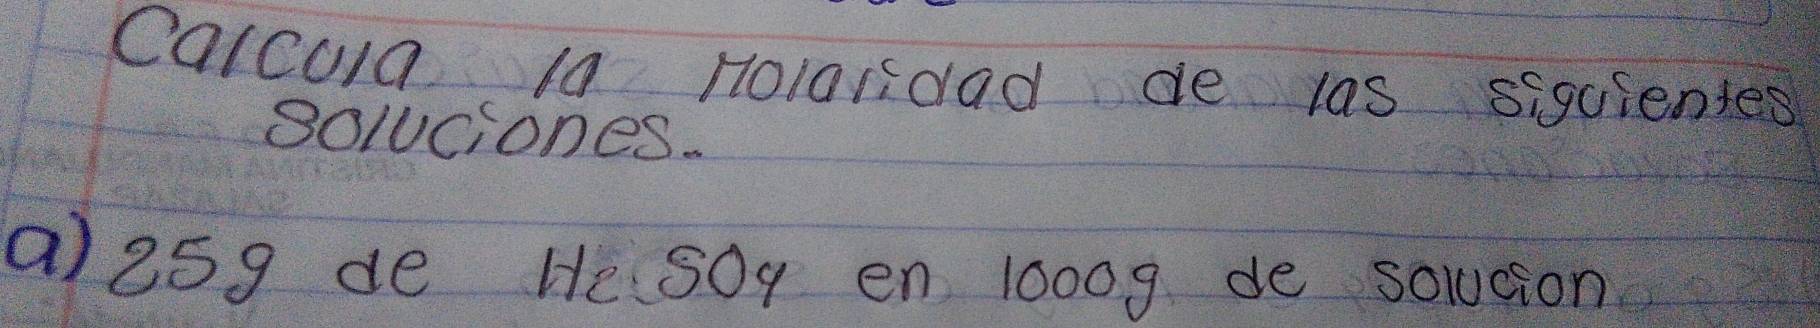 Calcula la Molaridad de las siguientes
soluciones.
a) 25g de H2SO4 en 1000g de solucion